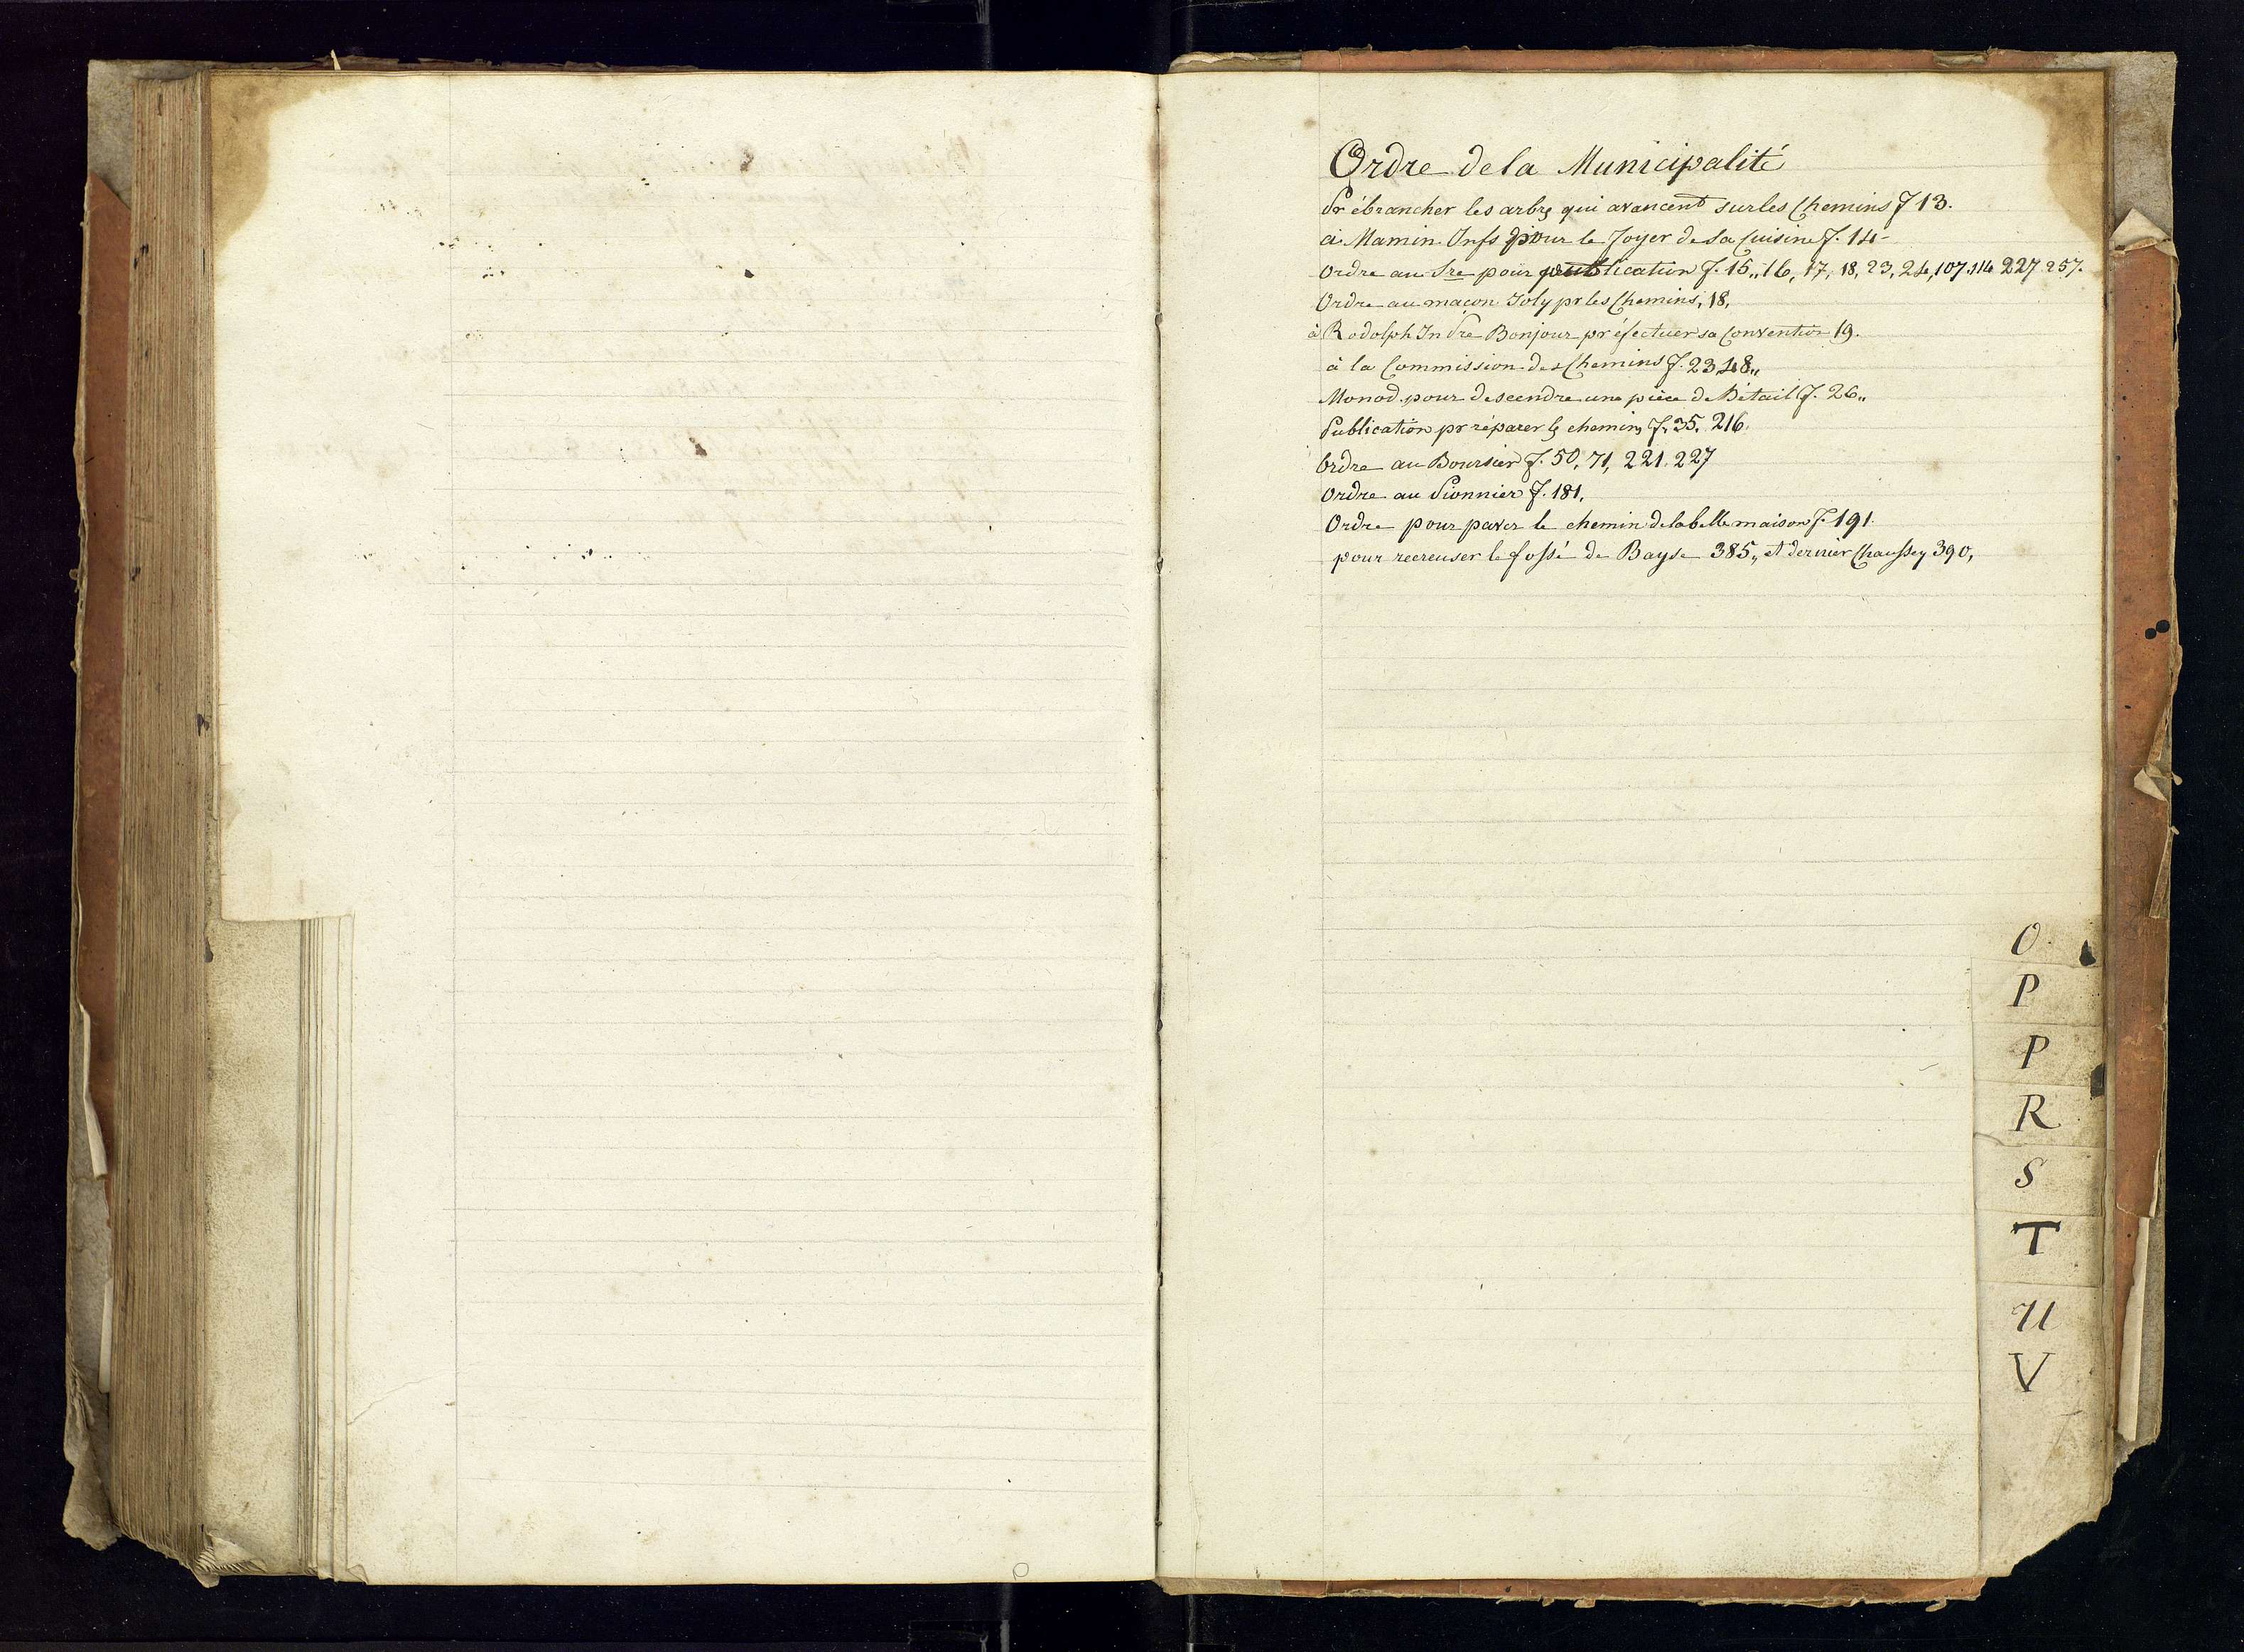 Ordre de la Municipalité
Pr ébrancher les arbres qui avancent sur les Chemins f 13.
à Mamin Infs pour le foyer de sa Cuisine f. 14
Ordre au Sre pour publication f. 15,, 16, 17, 18, 23, 24, 107. 114 227. 257.
Ordre au maçon Joly pr les Chemins, 18,
à Rodolph Bonjour pr éfectuer sa Convention 19.
à la Commission des Chemins f. 23 48,,
Monod pour descendre une pièce de Bétail f. 26,,
Publication pr réparer les chemins f. 35. 216.
Ordre au Boursier f. 50, 71, 221. 227
Ordre au Pionnier f. 181,
Ordre pour paver le chemin de la belle maison f. 191.
pour recreuser le fossé de Bayse 385,, et dernier Chaussey 390,
O.
P
P
R
S
T
U
V